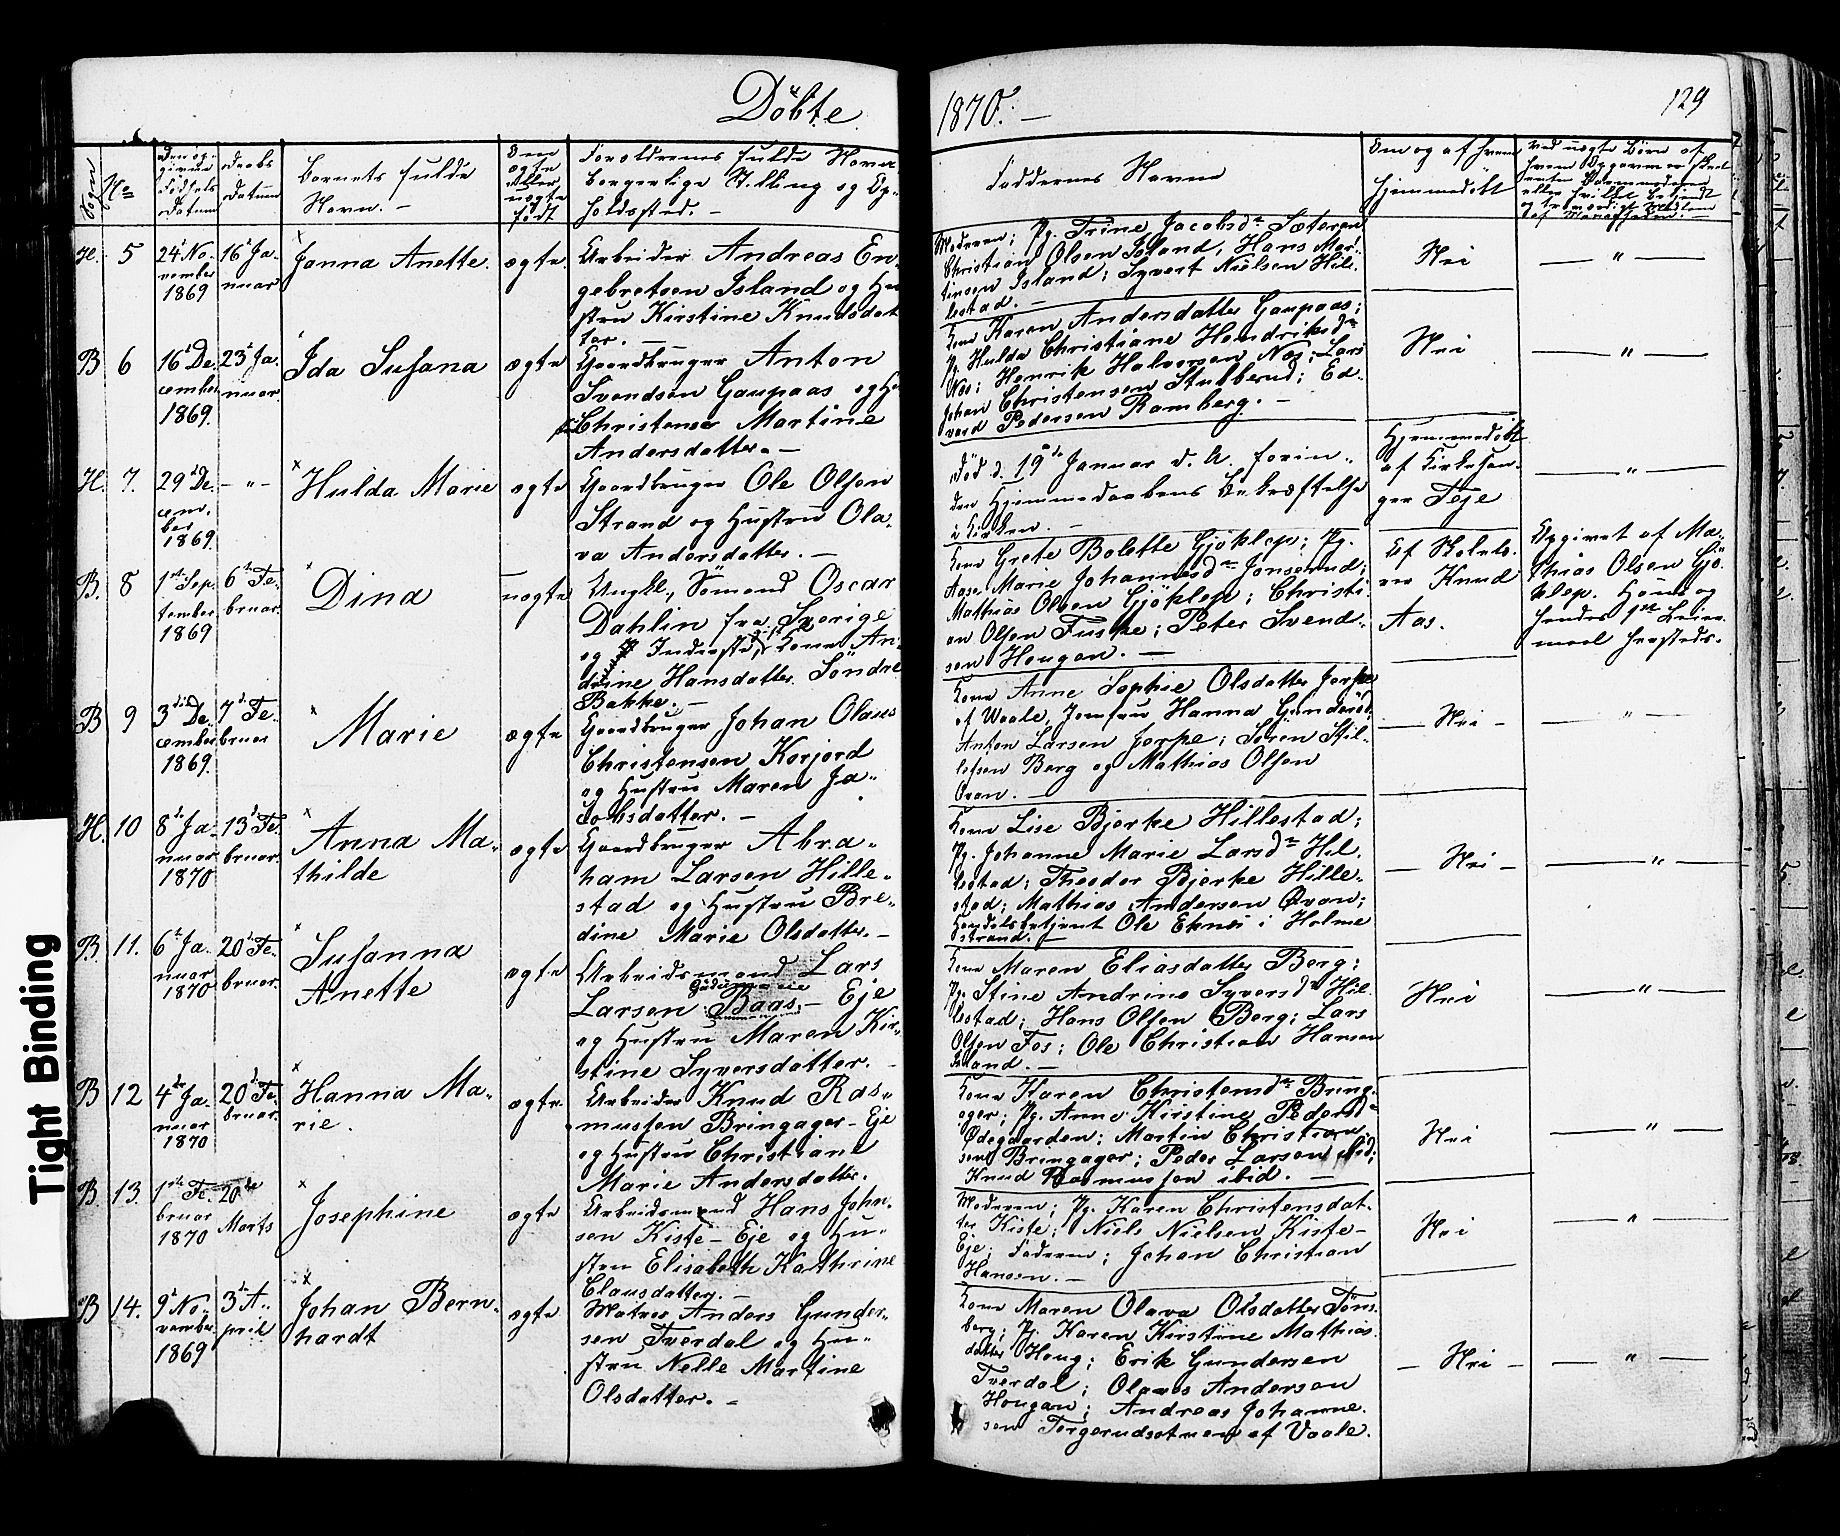 Döbte
1870. —
129
Sogn
No
Den op-
givne
Fødsels
Datum
Daabs
Datum
Barnets fulde
Navn. —
Om
ægte
eller
uægte
født
Forældrenes fulde Navn
borgerlige Stilling og Op-
holdssted. —
Faddernes Navne
Om og af hvem
hjemmedöbt
Ved uægte Börn af
hvem Opgaven er skeet
H. 5
24d No-
vember
1869
16d Ja-
nuar
Janna Anette.
ægte
Arbeider Andreas En-
gebretsen Island og Hu
stru Kirstine Knudsdat
ter. —
Moderen; Pg. Trine Jacobsdr Sæteren
Christian Olsen Island, Hans Mar-
tinsen Island; Syvert Nielsen Hil-
lestad. —
Nei
— " —
B 6
16d De-
cember
1869.
23d Ja-
nuar.
Ida Susana
ægte
Gaardbruger Anton
Svendsen Gaupaas og Hu
Christense Martine
Andersdatter. —
Kone Karen Andersdatter Gaupaas;
Pg. Hulda Christiane Hendriksdr
Nøs; Henrik Halvorsen Nøs; Lars
Johan Christensen Stubberud; Ed-
vard Pedersen Ramberg. —
Nei
— " —
H. 7.
29d De-
cem-
ber
1869.
— " —
Hulda Marie
ægte
Gaardbruger Ole Olsen
Strand og Hustru Ola-
va Andersdatter. —
Död d. 19de Januar d. A. forin-
den Hjemmedaabens Bekræftelse
i Kirken. —
Hjemmedöbt
af Kirkesan-
ger Teje
— " —
B. 8
1ste Sep
tember
1869
6te Fe-
bruar.
Dina
uægte
Ungkl., Sömand Oscar
Dahlin fra Sverige
og Inderste, Kone An-
drine Hansdatter Söndre
Bakke. —
Kone Grete Bolette Gjöklep; Pg.
Aase Marie Johannesdr Jonserud;
Mathias Olsen Gjöklep; Christi-
an Olsen Fuske; Peter Svend-
sen Hougan. —
Af Skolelæ-
rer Knud
Aas.
Opgivet af Ma-
thias Olsen Gjö-
klep. Hans og
hendes 1ste Leier-
maal hersteds.
B 9
3die De-
cember
1869.
7de Fe-
bruar
Marie
ægte
Gaardbruger Johan Olaus
Christensen Korjord
og Hustru Maren Ja-
cobsdatter. —
Kone Anne Sophie Olsdatter Jerpe
af Waale, Jomfru Hanna Gunderöd;
Anton Larsen Jerpe; Sören Stil-
lefsen Berg og Mathias Olsen
Øvan. —
— Nei —
— " —
H. 10
8de Ja-
nuar
1870
13de Fe-
bruar.
Anna Ma-
thilde
ægte
Gaardbruger Abra-
ham Larsen Hille-
stad og Hustru Bre-
dine Marie Olsdatter. —
Kone Lise Bjerke Hillestad;
Pg. Johanne Marie Larsdr Hil-
lestad; Theodor Bjerke Hille-
stad; Mathias Andersen Øvan;
Handelsbetjent Ole Eknes i Holme
strand. —
— Nei —
— " —
B 11.
6te Ja-
nuar
1870
20de Fe-
bruar.
Susanna
Anette
ægte
Arbeidsmand Lars
Larsen Baas — Eje
og Hustru Maren Kir-
stine Syversdatter. —
Kone Maren Eliasdatter Berg;
Pg. Stine Andrine Syversdr Hil-
lestad; Hans Olsen Berg; Lars
Olsen Fos; Ole Christian Hansen
Island. —
Nei
— " —
B 12
4de Ja-
nuar
1870
20de Fe-
bruar.
Hanna Ma-
rie.
ægte
Arbeider Knud Ras-
mussen Bringager — Eje
og Hustru Christiane
Marie Andersdatter.
Kone Karen Christensdr Bring-
ager; Pg. Anne Kirstine Pedersdr
Ødegaarden; Martin Christian-
sen Bringager; Peder Larsen ibid;
Knud Rasmussen ibid. —
Nei
— " —
B. 13.
1ste Fe-
bruar
1870
20de
Marts
Josephine
ægte
Arbeidsmand Hans John-
sen Kiste — Eje og Hu-
stru Elisabeth Kathrine
Clausdatter. —
Moderen; Pg. Karen Christensdat-
ter Kiste; Niels Nielsen Kiste —
Eje; Faderen; Johan Christian
Hansen. —
Nei
— " —
B 14.
9de No-
vember
1869
3de A-
pril
Johan Bern-
hardt
ægte
Matros Anders Gunder-
sen Tverdal og Hu-
stru Nelle Martine
Olsdatter. —
Kone Maren Olava Olsdatter Töns-
berg; Pg. Karen Kirstine Mathias-
datter Houg; Erik Gundersen
Tverdal; Olaves Andersen
Hougan; Andreas Johanne-
sen Torgerudsetren af Vaale.
— Nei —
— " —
Tight Binding